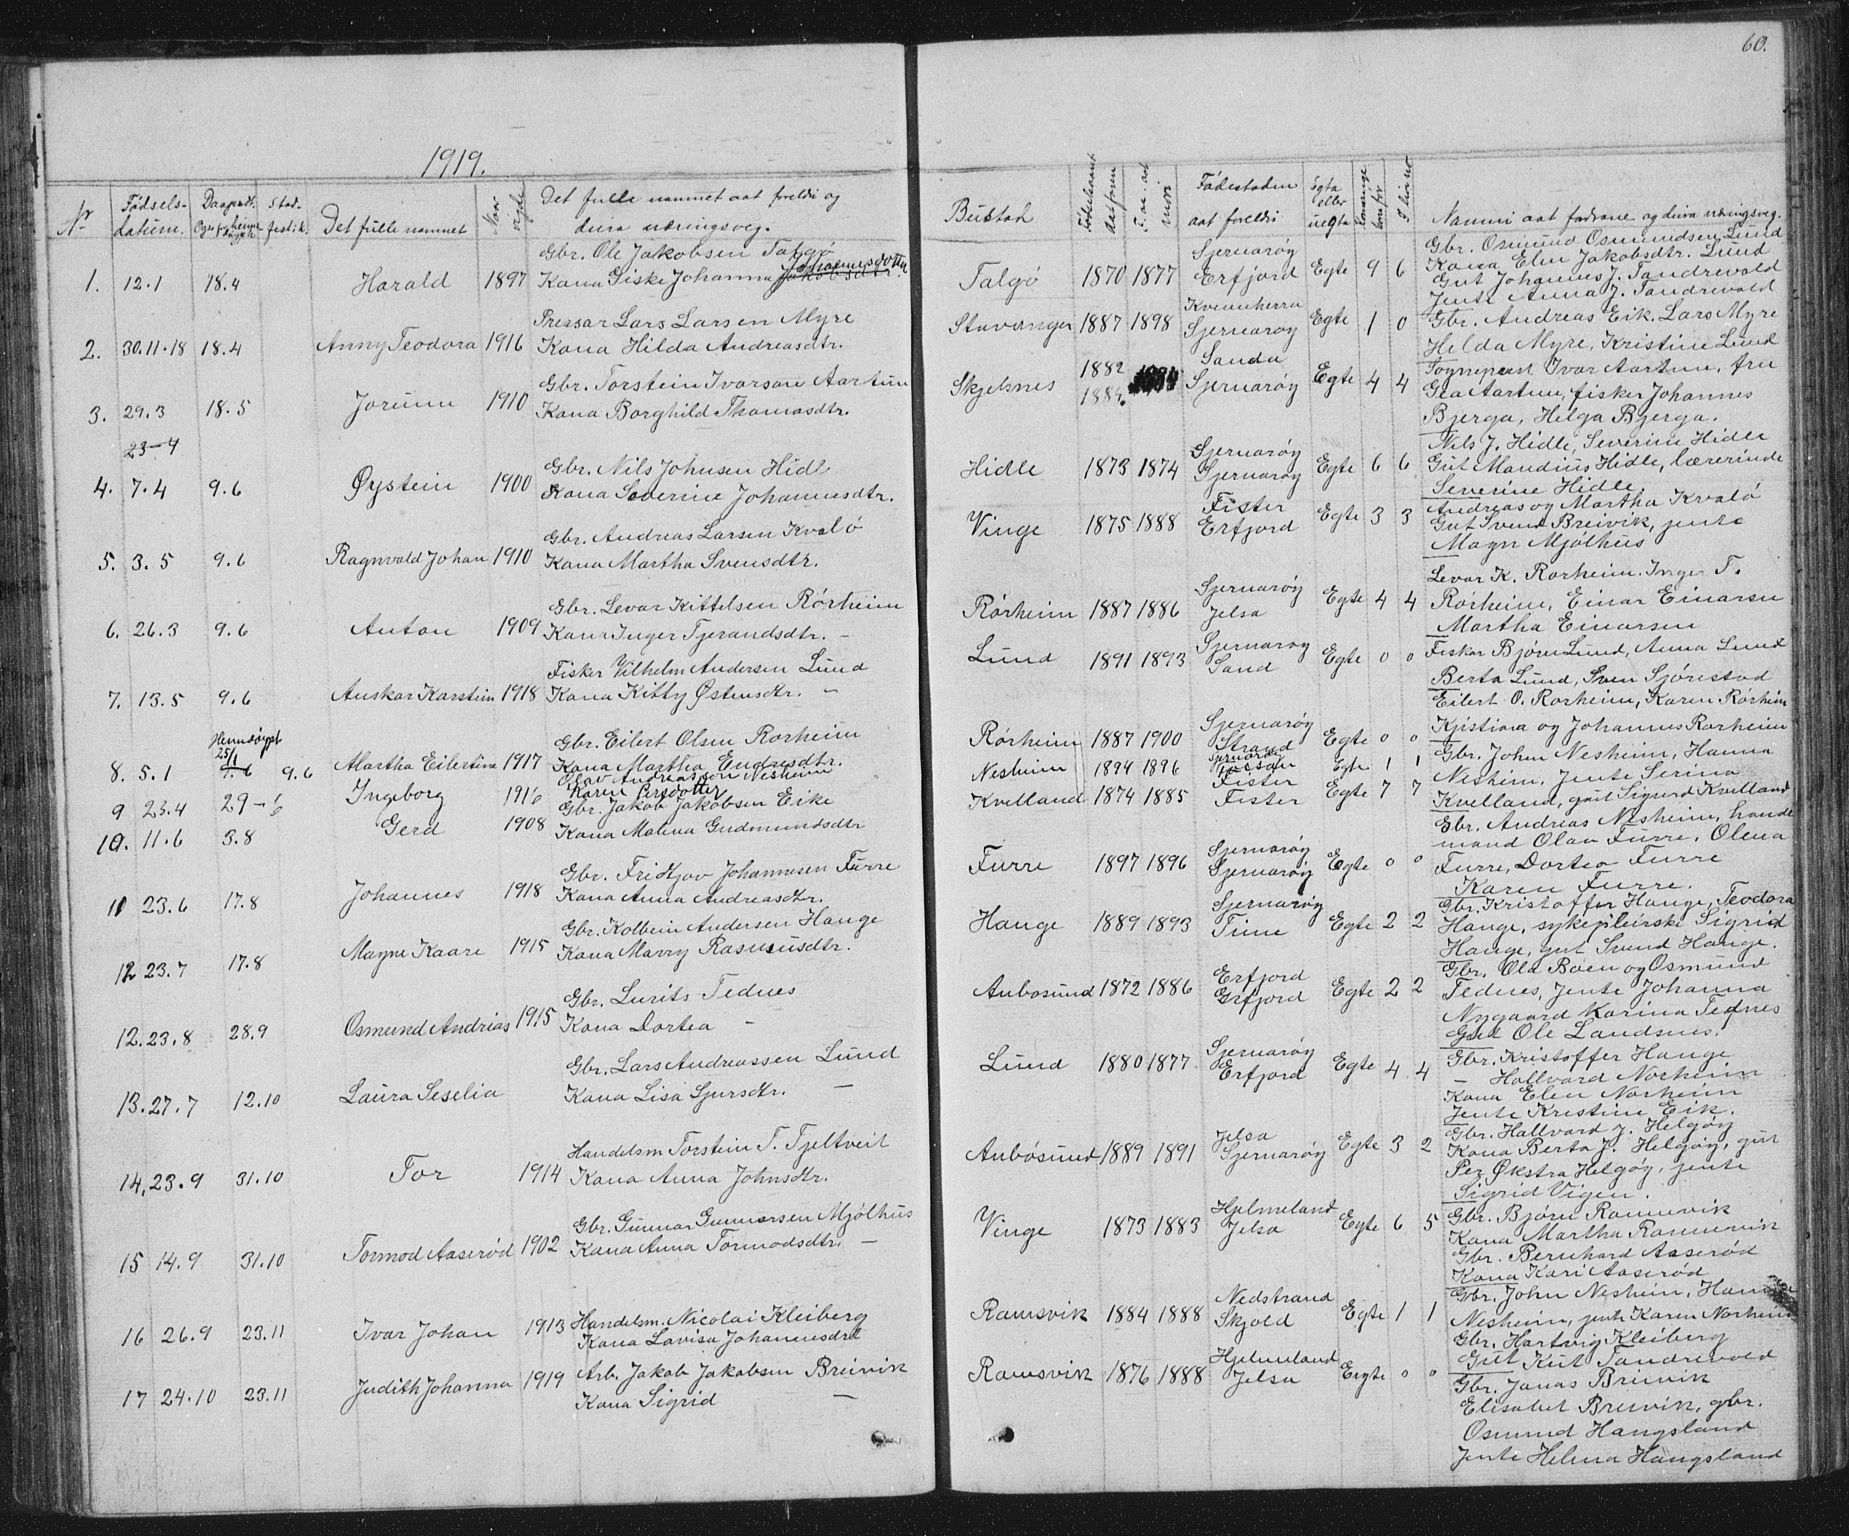 60.
1919.
Nr
Fødsels-
datum.
Stad-
festik.
Det fulle nammet
Naar
vigde
Det fulle nammet aat foreldri og
deira næringsveg.
Bustad
Fødestaden
aat foreldri
Egta
eller
uegta
Namni aat fadrane og deira næringsveg.
1. 12.1 18.4 Harald 1897
Gbr. Ole Jakobsen Talgø
Kona Giske Johanna Jakobsdtr. Johannesdotter
Talgø 1870 1877 Sjernarøy Erfjord Egte 9 6
Gbr. Osmund Osmundsen Lund
Kona Elen Jakobsdtr. Lund
Gut Johannes J. Tandrevold
Jente Anna J. Tandrevold
2. 30.11.18 18.4 Anny Teodora 1916
Pressar Lars Larsen Myre
Kona Hilda Andreasdtr.
Stavanger 1887 1898 Kvinnherra Sjernarøy Egte 1 0
Gbr. Andreas Eik. Lars Myre
Helda Myre, Kristine Lund
3. 29.3 18.5 Jorunn 1910
Gbr. Torstein Ivarson Aartun
Kona Borghild Thomasdtr.
Skjelsnes 1882 1884. Sanda Sjernarøy Egte 4 4
Sogneprest Ivar Aartun, fru
Gea Aartun, fisker Johannes
Bjerga, Helga Bjerga.
23-4
4. 7.4 9.6 Øystein 1900
Gbr. Nils Johnsen Hidle
Kona Severine Johannesdtr.
Hidle 1873 1874 Sjernarøy Sjernarøy Egte 6 6
Nils J. Hidle, Severine Hidle
Gut Mandius Hidle, lærerinde
Severine Hidle.
5. 3.5 9.6 Ragnvald Johan 1910
Gbr. Andreas Larsen Kvalø
Kona Martha Svensdtr.
Vinge 1875 1888 Fister Erfjord Egte 3 3
Andreas og Martha Kvalø
Gut Svend Breivik, jente
Magn Mjølhus
6. 26.3 9.6 Anton 1909
Gbr. Levar Kittelsen Rørheim
Kona Inger Tjerandsdtr. -
Rørheim 1887 1886 Sjernarøy Jelsa Egte 4 4
Levar K. Rorheim. Inger T.
Rørheim, Einar Einarsen
Martha Einarsen
7. 13.5 9.6 Anskar Karstein 1918
Fisker Vilhelm Andersen Lund
Kona Kitty Østensdtr. -
Lund 1891 1893 Sjernarøy Sand Egte 0 0
Fisker Bjørn Lund, Anna Lund
Berta Lund, Sven Sjørestad
8. 5.1 Heimdøypt 25/1 9.6 Martha Eilertine 1917
Gbr. Eilert Olsen Rorheim
Kona Martha Endresdtr.
Rørheim 1887 1900 Sjernarøy Strand Egte 0 0
Eilert O. Rorheim, Karen Rørheim
Kristiara og Johannes Rorheim
9 23.4 29-6 Ingeborg 1916
Olav Andreasson Nesheim
Karen Persdotter
Nesheim 1894 1896 Egte 1 1
Gbr. John Nesheim, Hanna
Nesheim, Jente Serina
10. 11.6 3.8 Gerd 1908
Gbr. Jakob Jakobsen Eike
Kona Malena Gudmundsdtr
Kvelland 1874 1885 Fister Fister Egte 7 7
Kvelland, gut Sigurd Kvelland
11 23.6 17.8 Johannes 1918
Gbr. Fridtjov Johannesen Furre
Kona Anna Andreasdtr.
Furre 1897 1896 Sjernarøy Sjernarøy Egte 0 0
Gbr. Andreas Nesheim, hands
mand Olav Furre, Olena
Furre, Dortea Furre
Karen Furre.
12 23.7 17.8 Magne Kaare 1915
Gbr. Kolbein Andersen Hauge
Kona Marry Rasmusdtr.
Hauge 1889 1893 Sjernarøy Time Egte 2 2
Gbr. Kristoffer Hauge, Teodora
Hauge, sykepleirske Sigrid
Hauge, gut Svend Hauge.
12. 23.8 28.9 Osmund Andrias 1915
Gbr. Lurits Tednes
Kona Dortea -
Anbosund 1872 1886 Erfjord Erfjord Egte 2 2
Gbr. Ola Boen og Osmund
Tednes, Jente Johanna
Nygaard Karina Tednes
Gut Ole Landsnes.
13. 27.7 12.10 Laura Seselia
Gbr. Lars Andreassen Lund
Kona Lisa Sjursdtr. -
Lund 1880 1877 Sjernarøy Erfjord Egte 4 4
Gbr. Kristoffer Hauge
- Hallvard Norheim
Kona Elen Norheim
Jente Kristine Eik.
14, 23.9 31.10 Tor 1914
Handelsm Torstein T. Tjeltveit
Kona Anna Johnsdtr.
Anbøsund 1889 1891 Jelsa Sjernarøy Egte 3 2
Gbr. Hallvard J. Helgøy
Kona Berta J. Helgøy, gut
Per Økstra Helgøy, jente
Sigrid Vigen.
15 14.9 31.10 Tormod Aaserød 1902
Gbr. Gunnar Gunnarsen Mjølhus
Kona Anna Tormodsdtr. -
Vinge 1873 1883 Hjelmeland Jelsa Egte 6 5
Gbr. Bjørn Ramsvik
Kona Martha Ramsvik
Gbr. Bernhard Aaserød
Kona Kari Aaserød
16 26.9 23.11 Ivar Johan 1913
Handelsm. Nicolai Kleiberg
Kona Lovisa Johannesdtr
Ramsvik 1884 1888 Nedstrand Skjold Egte 1 1
Gbr. John Nesheim, Hanna
Nesheim, jente Karen Norheim
Gbr. Hartvig Kleiberg
Gut Kut Tandrevold
17 24.10 23.11 Judith Johanna 1919
Arb. Jakob Jakobsen Breivik
Kona Sigrid -
Ramsvik 1876 1888 Hjelmeland Jelsa Eigte 0 0
Gbr. Jonas Breivik
Elisabet Breivik, gbr.
Osmund Haugsland
Jente Helena Haugsland